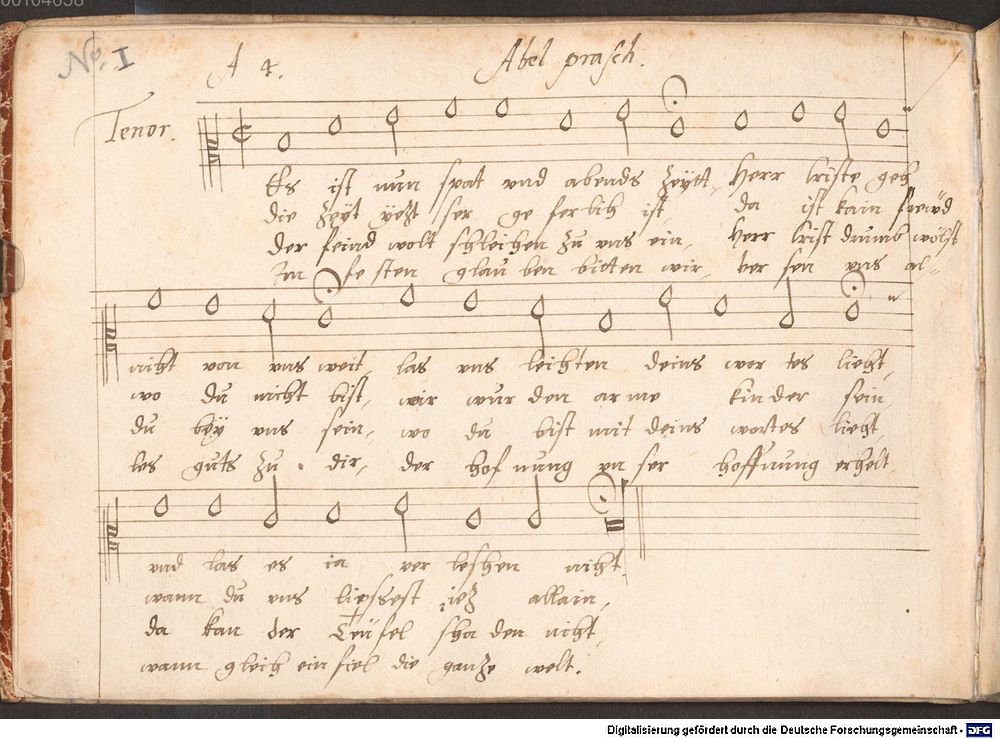 00104638
No. I
A 4.
Abel prasch.
Tenor.
Es ist nun spat und abends zeÿtt, Herr Criste geh
die zeÿt ÿezt ser ge ferlich ist da ist kain freüd
der feind wolt schleichen zu uns ein, Herr Crist drumb wölst
Im fe sten glau ben bitten wir, ver sen uns al-
nicht von uns weit, las uns leichten deins wor tes liecht,
wo du nicht bist, wir wur den arme kinder sein,
du beÿ uns sein, wo du bist mit deins wortes liecht,
les guts zu dir, der hof nung un ser hoffnung erhelt
und las es ia ver leschen nicht.
wann du uns liessest iez allain,
da kan der Teüfel scha den nicht,
wann gleich ein fiel die ganze welt.
Digitalisierung gefördert durch die Deutsche Forschungsgemeinschaft - DFG